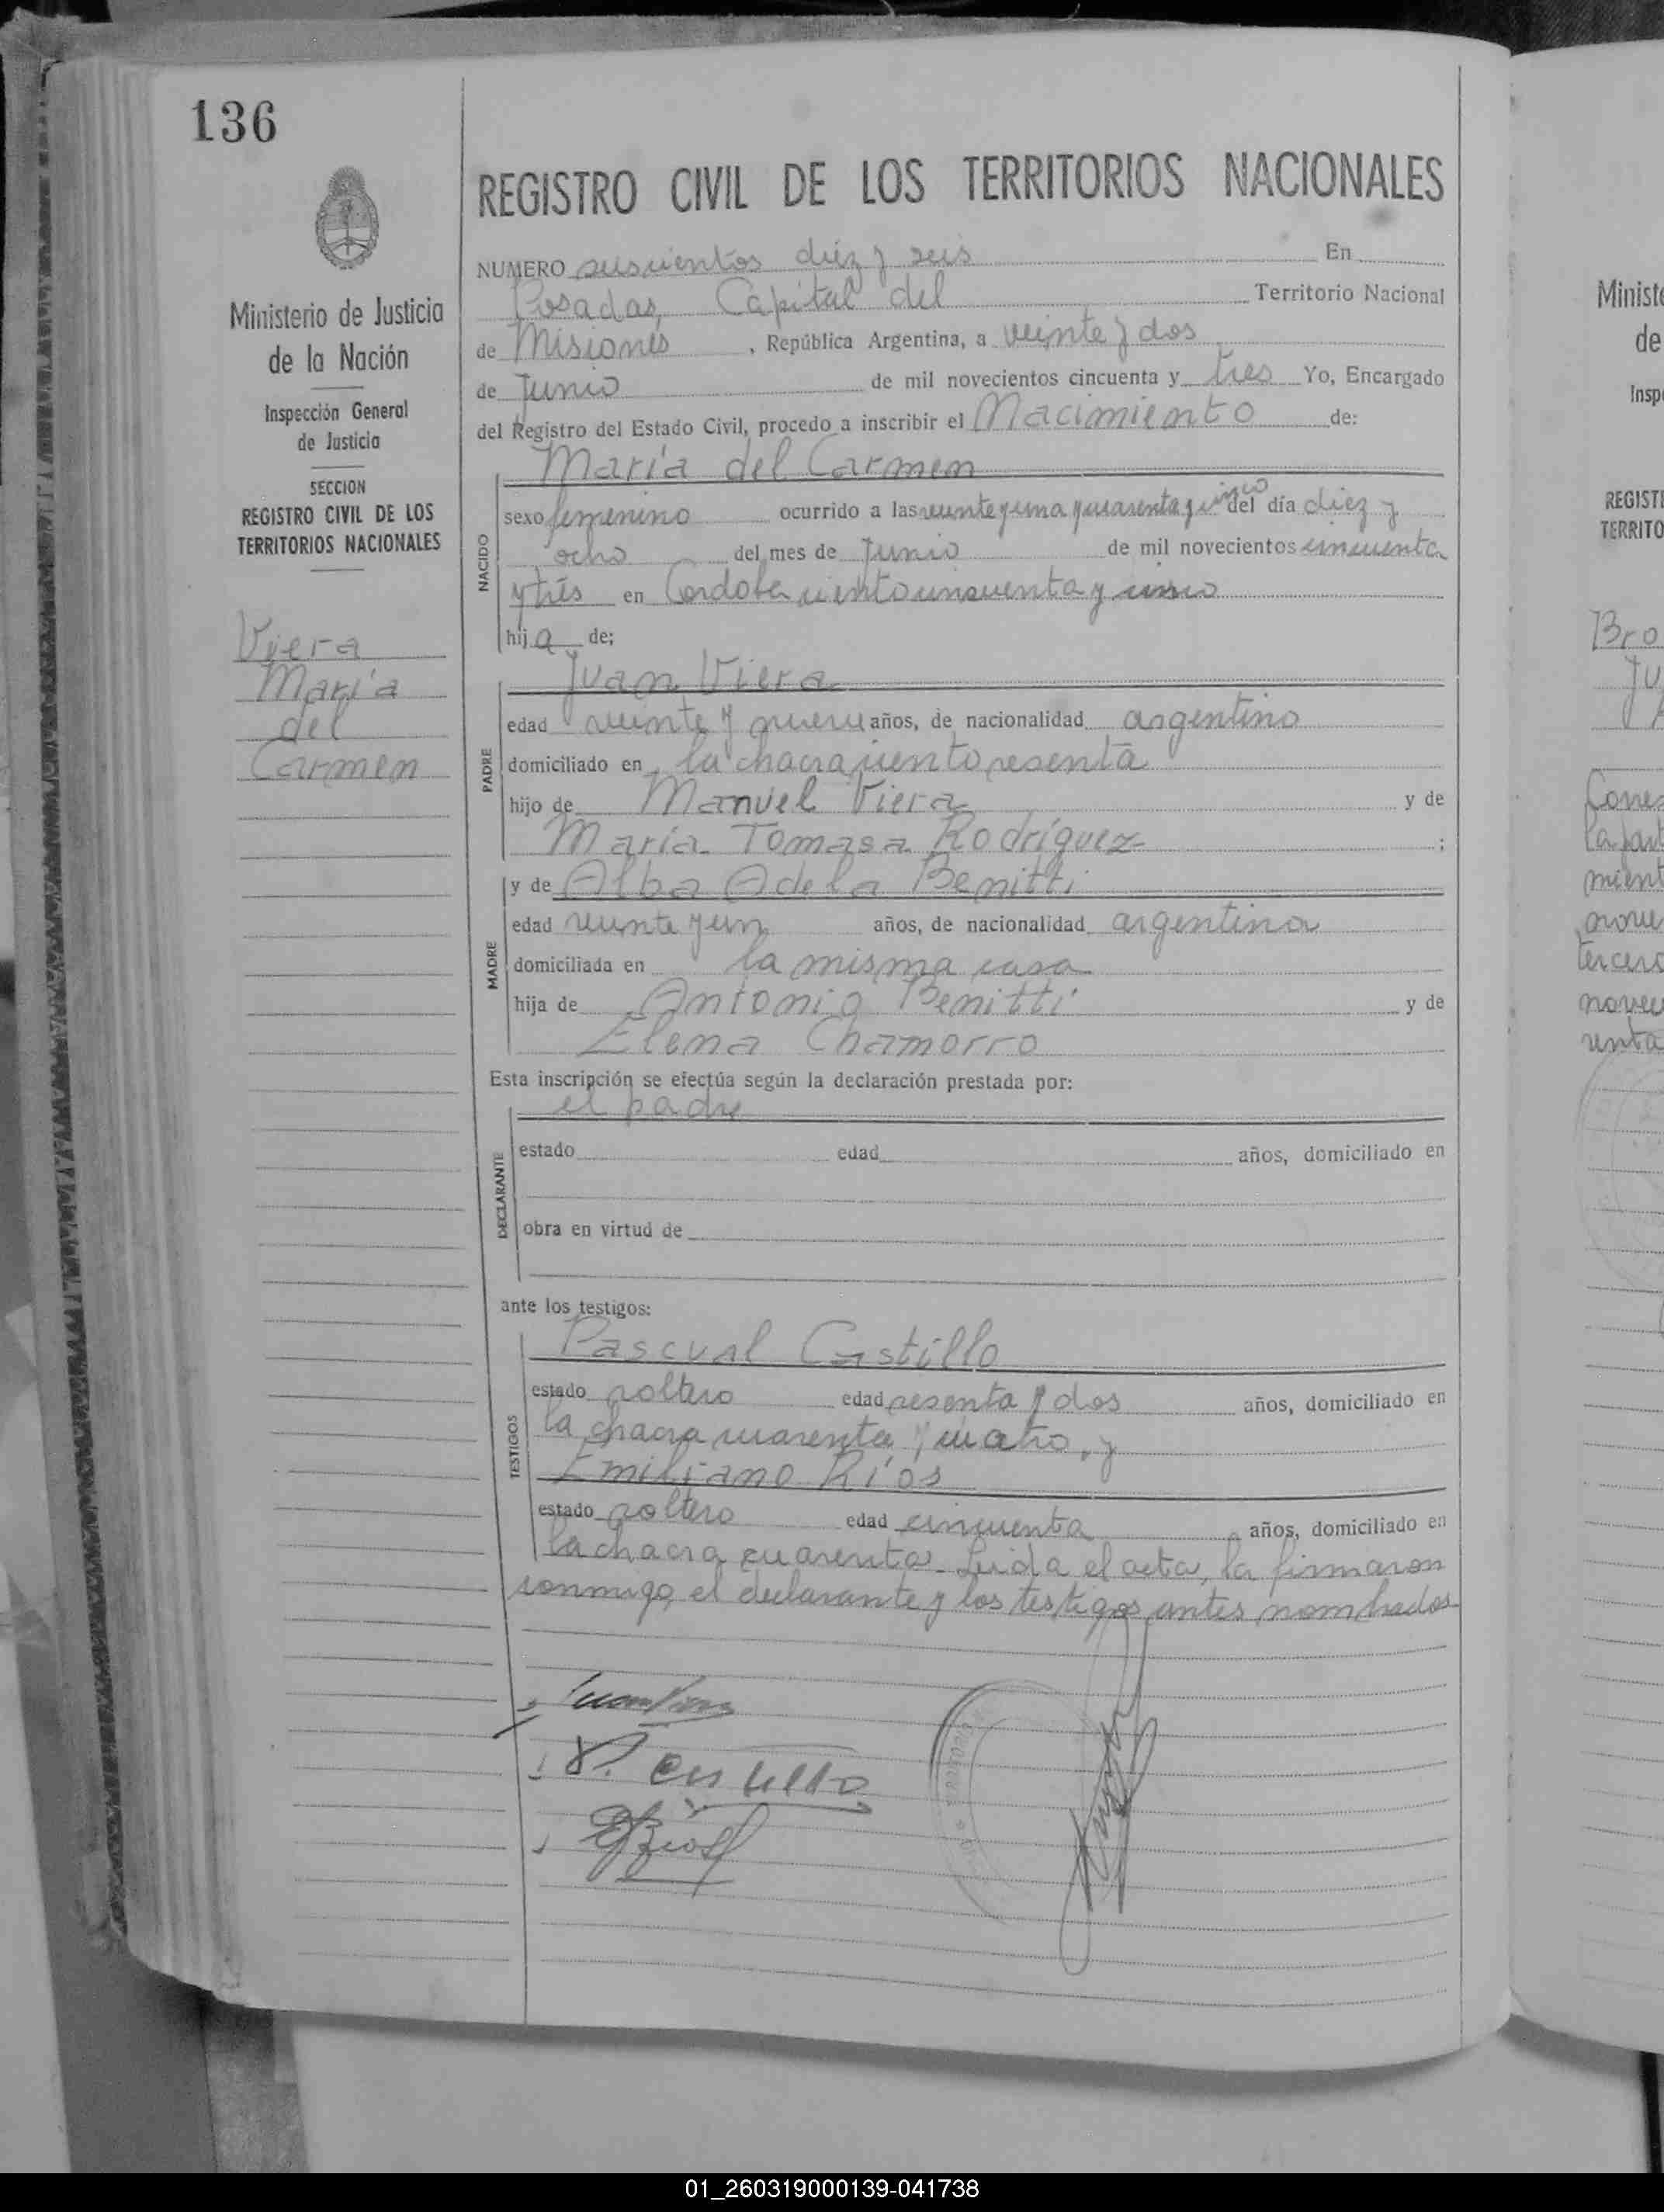 136
REGISTRO CIVIL DE LOS TERRITORIOS NACIONALES
NUMERO seiscientos diez y seis En
Posadas, Capital del Territorio Nacional
de Misiones, República Argentina, a veinte y dos
de Junio de mil novecientos cincuenta y tres Yo, Encargado
del Registro del Estado Civil, procedo a inscribir el Nacimiento de:
María del Carmen
NACIDO
sexo femenino ocurrido a las veinte y una y cuarenta y cinco del día diez y
ocho del mes de Junio de mil novecientos cincuenta
y trés en Cordoba ciento cincuenta y cinco
hija de;
Juan Viera
PADRE
edad veinte y nueve años, de nacionalidad argentino
domiciliado en la chacra ciento sesenta
hijo de Manuel Viera y de
María Tomasa Rodríguez ;
y de Alba Adela Benitti
MADRE
edad veinte y un años, de nacionalidad argentina
domiciliada en la misma casa
hija de Antonio Benitti y de
Elena Chamorro
Esta inscripción se efectúa según la declaración prestada por:
el padre
DECLARANTE
estado edad años, domiciliado en
obra en virtud de
ante los testigos:
Pascual Castillo
TESTIGOS
estado soltero edad sesenta y dos años, domiciliado en
la chacra cuarenta y cuatro, y
Emiliano Ríos
estado soltero edad cincuenta años, domiciliado en
la chacra cuarenta. Leida el acta, la firmaron
conmigo, el declarante y los testigos antes nombrados
Juan Viera
P. Castillo
E Rios
Ministerio de Justicia
de la Nación
Inspección General
de Justicia
SECCION
REGISTRO CIVIL DE LOS
TERRITORIOS NACIONALES
Viera
María
del
Carmen
Ministe
de
Inspe
REGISTE
TERRITO
Bro
Ju
tercero
01_260319000139-041738